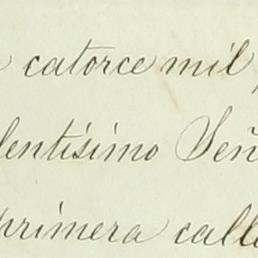 catorce mil
lentísimo Señ
primera calle